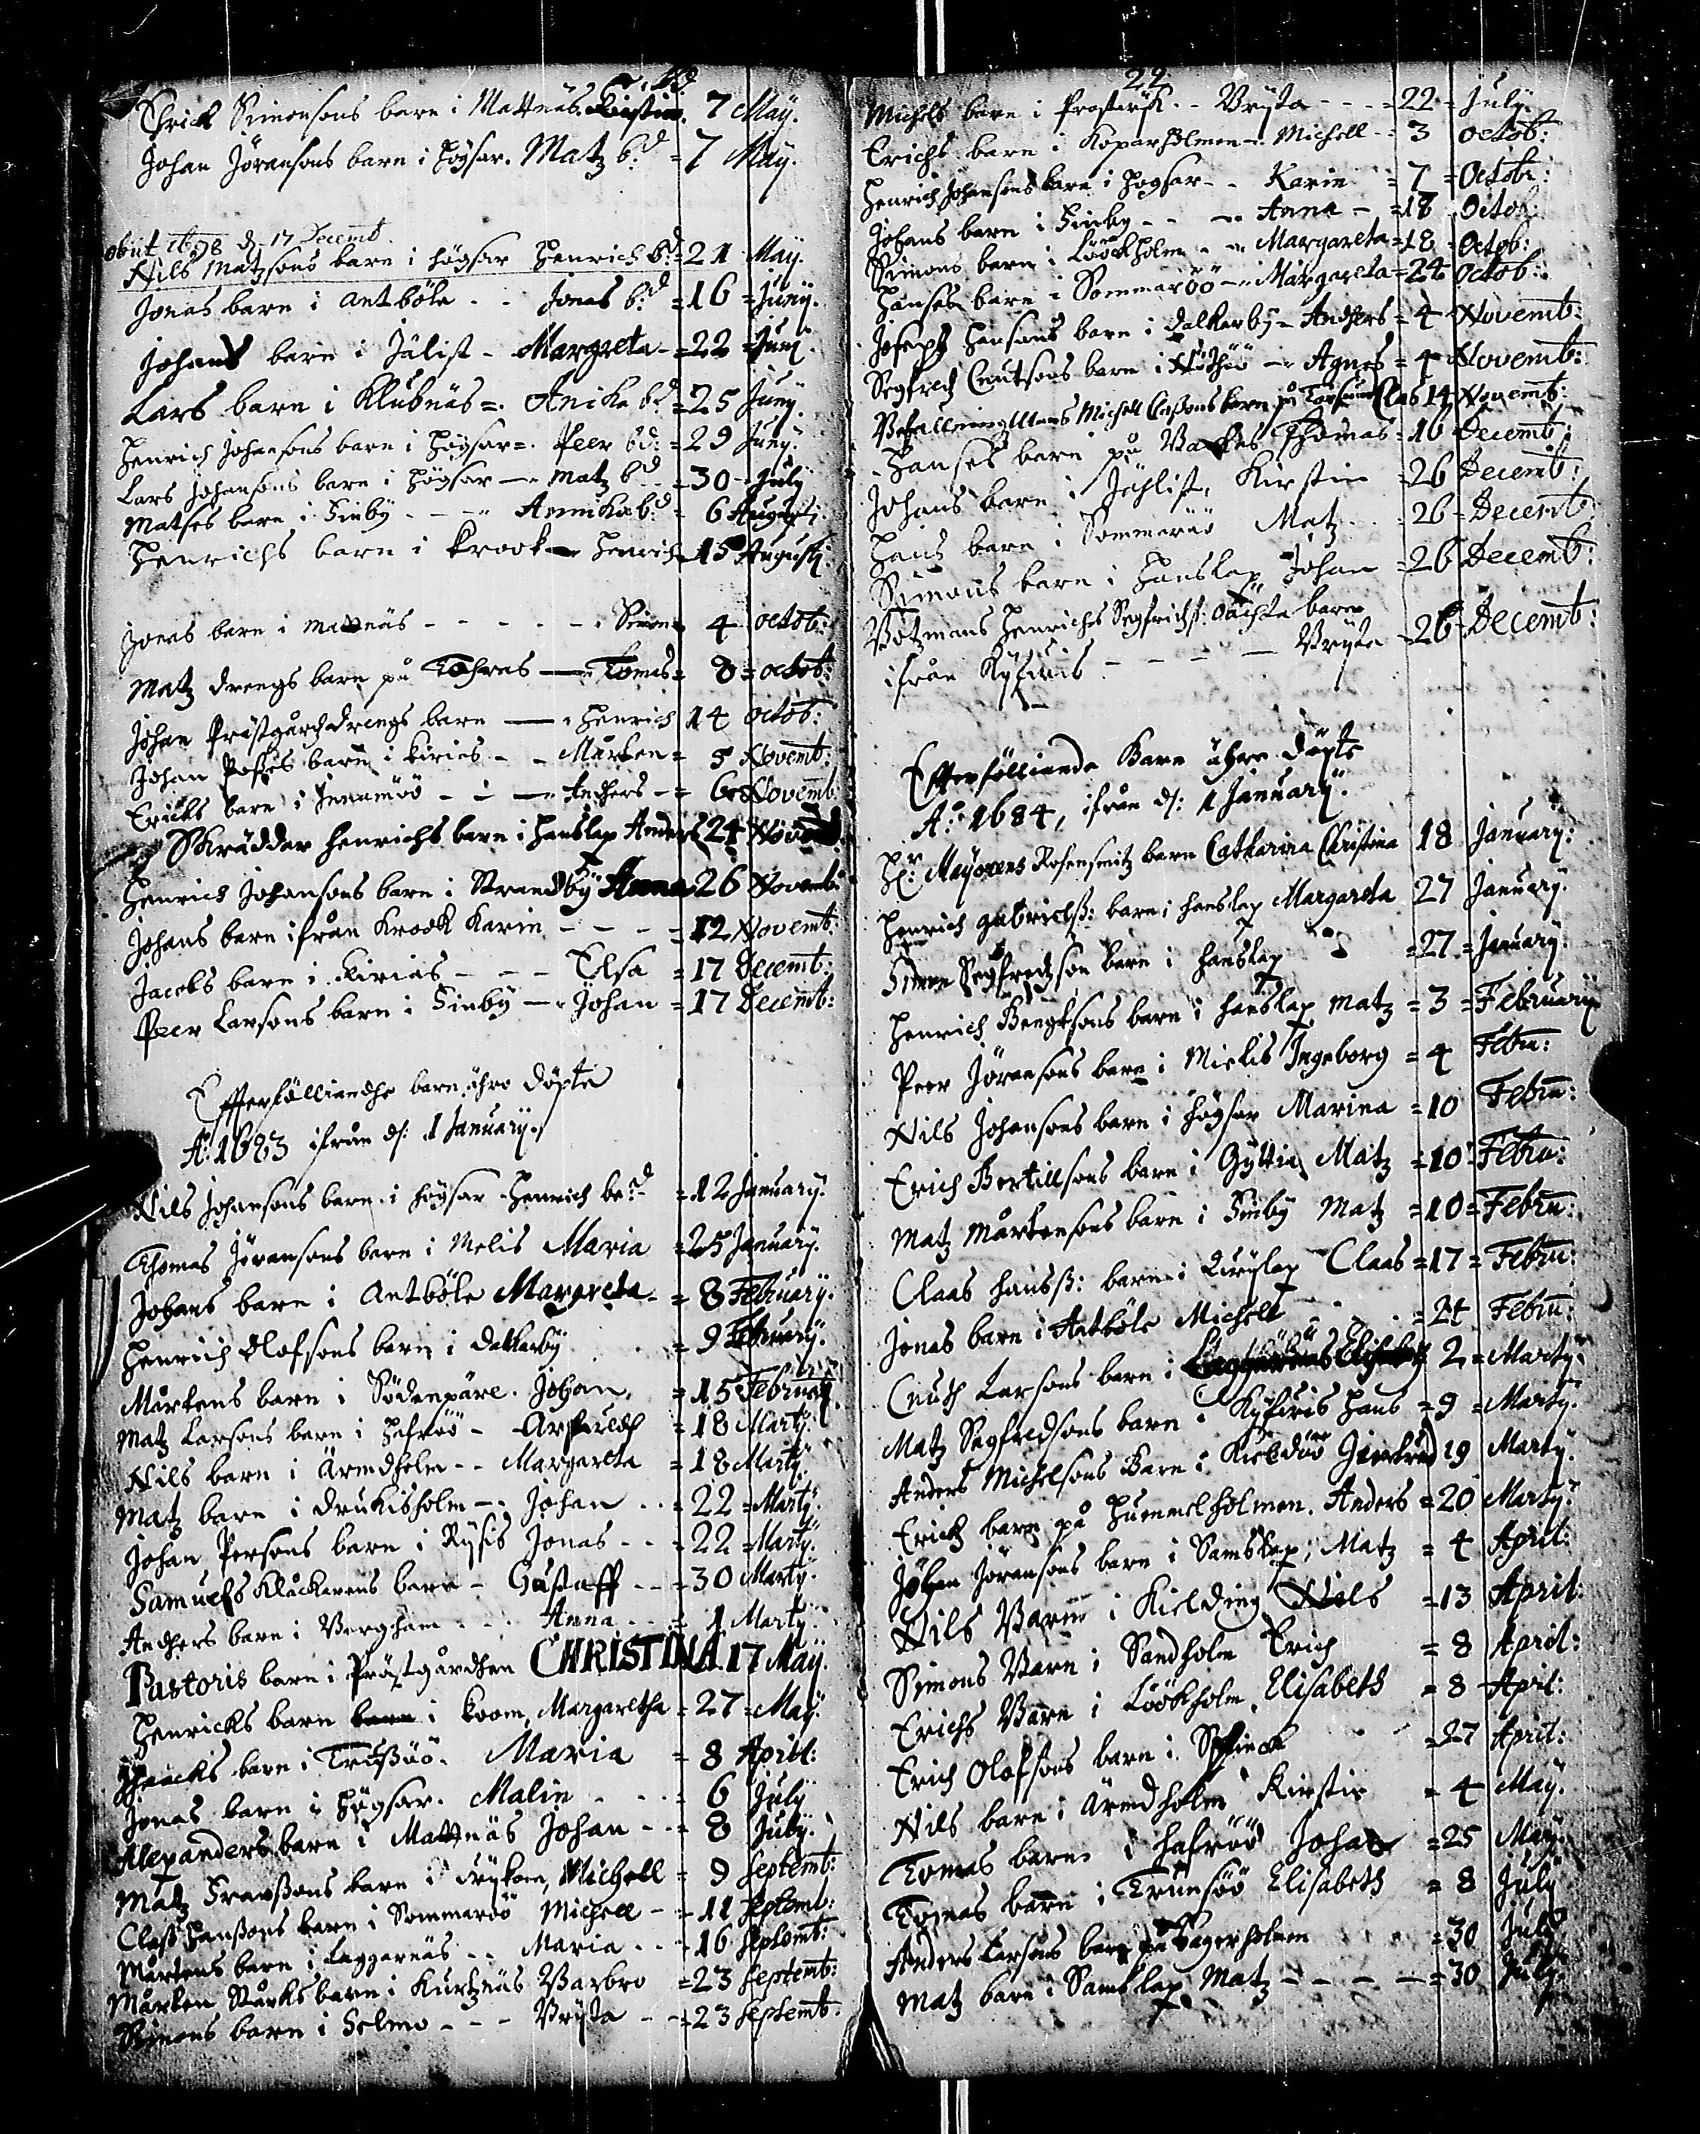 Erich Simonsons barn i Mattnäs. Kirstin. 7 May.
Johan Jöransons barn i högsar. Matz b:d = 7 May.
obiit 1698 d. 17 Decemb.
Nils Matzsons barn i högsar Henrich b:d = 21 May.
Jonas barn i Antböle - - Jonas b:d = 16 = Juny.
Johans barn i Jälist - Margreta - = 22 = Juny.
Lars barn i Klubnäs =. Anicka b:d = 25 Juny.
Henrich Johansons barn i högsar =. Peer bd: = 29 Juny.
Lars Johansons barn i högsar - Matz b:d - = 30 - July
Matses barn i Finby - - - Annika b:d = 6 Augusti
Henrichs barn i Krook - Henrich 15 Augusti:
Jonas barn i Mattnäs - - - - - Simon 4 octob:
Matz drengs barn på - Tomas = 8 = octob:
Johan Prästgårdh drengs barn - Henrich 14 octob:
Johan barn i Kiries - - Mårten = 5 Novemb:
Ericks barn i Jennmöö - - - Anders - = 6 = Novemb:
Skräddar Henrichs barn i Hanslax Anders 24 Novemb
Henrich Johansons barn i Strandby Anna 26 Novemb:
Johans barn ifrån Krook Karin - - - - = 12 Novemb:
Jacobs barn i Kirias - - - Elsa = 17 Decemb:
Peer Larsons barn i Finby - Johan = 17 Decemb:
Effterfölliandhe barn ähro döpte
A:o 1683 ifrån d: 1 January.
Nils Johansons barn i högsar Henrich be:d = 12 January.
Thomas Jöransons barn i Melis Maria = 25 January.
Johans barn i Antböle Margreta - = 8 February.
Henrich Olofsons barn i Dalkarby = 9 February.
Mårtens barn i Johan = 15 February.
Matz Larsons barn i Hafröö - = 18 Marty.
Nils barn i Ärmdholm - - Margareta = 18 Marty.
Matz barn i - Johan - - = 22 = Marty.
Johan Persons barn i Rysis Jonas - - = 22 = Marty.
Samuels Klåckarens barn - Gustaff - - = 30 Marty.
Andhers barn i - - - Anna - - = 1 Marty.
Pastoris barn i Prästgårdhen CHRISTINA. 17 May.
Henricks barn i Margaretha = 27 = May.
barn i Maria = 8 April:
Jonas barn i högsar. Malin - - - = 6 July
Alexanders barn i Mattnäs Johan - - = 8 July.
Matz barn i Michell = 9 Septemb:
Hanssons barn i Sommaröö Michell - = 11 Septemb:
Mårtens barn i Laggarnäs - - Maria - - = 16 Septemb:
Mårten barn i Kurtznäs Barbro = 23 Septemb:
Simons barn i - - - Brÿta - - = 23 Septemb:
22
Michels barn i - - Brÿta - - - = 22 = July.
Erichs barn i Koparholmen - Michell - = 3 octob:
Henrich Johansons barn i högsar - - Karin = 7 = Octob:
Johans barn i Finby - - - Anna - = 18 Octob:
Simons barn i Löökholm - - Margareta = 18 = Octob:
Hanses barn i Sommaröö - Margareta = 24 Octob:
Joseph Hansons barn i Dalkarby - Anders = 4 Novemb:
Segfred Cnutsons barn i - Agnes = 4 Novemb:
Michell barn på Clas 14 Novemb:
Hanses barn på Thomas = 10 Decemb:
Johans barn i Jählist, Kirstin = 26 Decemb:
Hans barn i Sommaröö Matz = 26 = Decemb:
Simons barn i Hanslax Johan = 26 Decemb:
Henrichs barn
ifrån - - - - Brÿta = 26 Decemb:
Effterfölliande Barn ähro döpte
A:o 1684, ifrån d: 1 January.
H:r Mayorens barn Catharina Christina 18 January:
Henrich barn i hanslax Margareta 27 January.
Simon Segfredzson barn i hanslax = 27 = January.
Henrich Bengtsons barn i hanslax Matz = 3 = February
Peer Jöransons barn i Mielis Ingeborg = 4 Febru:
Nils Johansons barn i högsar Marina = 10 Febru:
Erich Bertillsons barn i Gyttia Matz = 10 = Febru:
Matz Mårtensons barn i Finby Matz = 10 = Febru:
Claas hanss: barn i Claas = 17 = Febru:
Jonas barn i Antböle Michell = 24 Febru:
Cnuth Larsons barn i Elisabeth 2 = Marty:
Matz Segfredsons barn i Hans = 9 = Marty:
Anders Michelsons Barn i Kieldöö Giertrud 19 Marty.
Erich barn på Hummelholmen. Anders = 20 Marty.
Johan Jöransons barn i Samslax; Matz = 4 April:
Nils Barn i Kielding Nils = 13 April:
Simons Barn i Sandholm Erich = 8 April:
Erichs Barn i Löökholm. Elisabeth = 8 April:
Erich Olofsons barn i = 27 April:
Nils barn i Ärmdholm Kirstin = 4 May.
Tomas barn i hafröö Johan = 25 May.
Tomas barn i Trunsöö Elisabeth = 8 July
Anders Larsons barn på Fagerholmen = 30 July
Matz barn i Samslax Matz - - - - = 30 July.